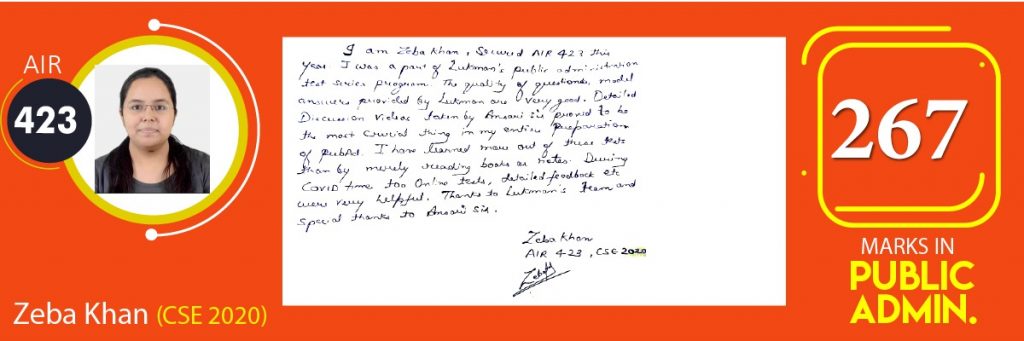 AIR
423
Zeba Khan (CSE 2020)
I am Zeba Khan, Secured AIR 423 this
year I was a part of Lukman's public administration
test series program. The quality of questions, model
answers provided by Lukman are very good. Detailed
Discussion Videos taken by Ansari sir proved to be
the most crucial thing in my entire preparation
of pubAd. I have learned more out of these tests
than by merely reading books or notes. During
Covid time too Online tests, detailed feedback etc
were very helpful. Thanks to Lukman's Team and
special thanks to Ansari Sir.
Zeba Khan
AIR 423, CSE 2020
267
MARKS IN
PUBLIC
ADMIN.